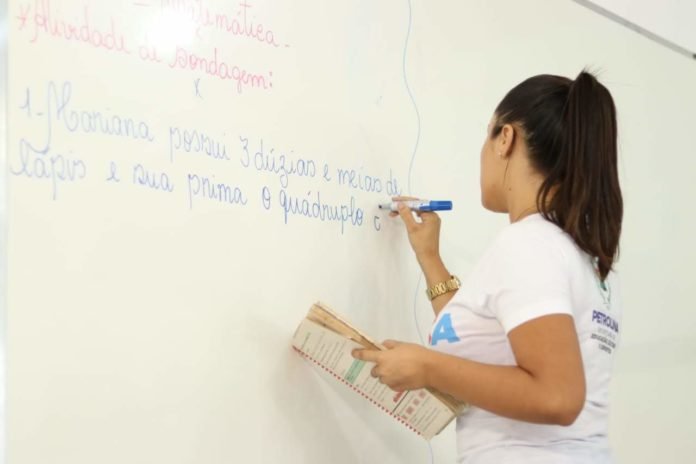 - Matemática.
*Atividade de Sondagem:
1- Mariana possui 3 dúzias e meias de
lápis e sua prima o quádruplo
PETROLINA